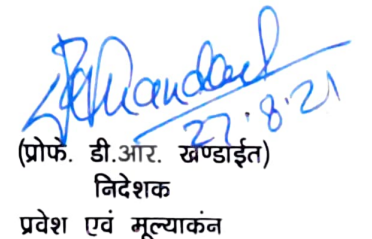 27.8.21
(प्रोफे. डी.आर. खण्डाईत)
निदेशक
प्रवेश एवं मूल्याकंन